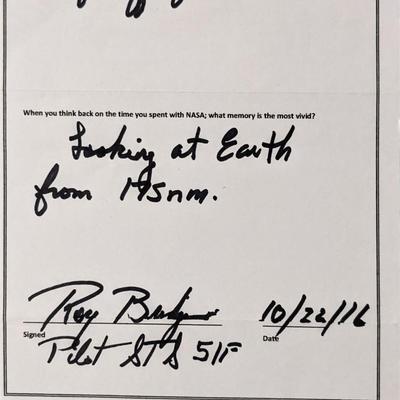 When you think back on the time you spent with NASA; what memory is the most vivid?
Looking at Earth
from 175nm.
Roy Bridges 10/22/16
Signed Date
Pilot STS 51F